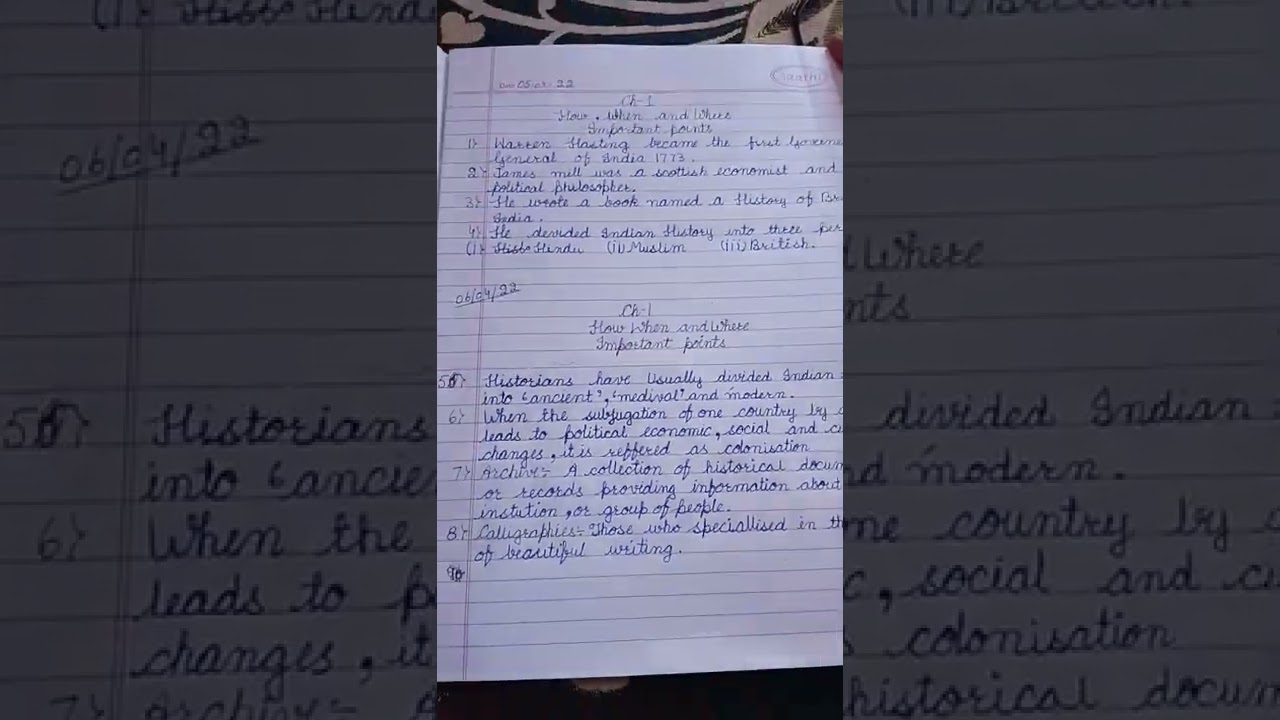 Saathi
Date 05/04/22
Ch-1
How, When and Where
Important points
1) Warren Hasting became the first Governe
General of India 1773.
2) James mill was a scottish economist and
political philosopher.
3) He wrote a book named a History of Br
India.
4) He devided Indian History into three per
(i) Hindu (ii) Muslim (iii) British.
06/04/22
Ch-1
How When and Where
Important points
5) Historians have Usually divided Indian
into 'ancient', 'medival' and modern.
6) When the subjugation of one country by
leads to political economic, social and cu
changes, it is reffered as colonisation
7) Archive:- A collection of historical docum
or records providing information about
instution, or group of people.
8) Calligraphies:- Those who speciallised in th
of beautiful writing.